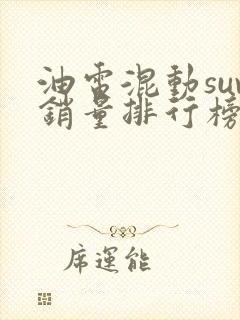 油電混動suv
銷量排行榜
席運能